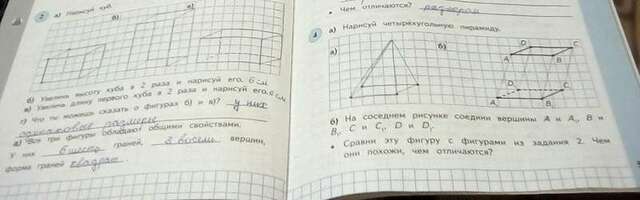 2 а) Нарисуй куб.
б)
в)
б) Увеличь высоту куба в 2 раза и нарисуй его. 6 см
в) Увеличь длину первого куба в 2 раза и нарисуй его. 6 см.
г) Что ты можешь сказать о фигурах б) и в)? у них
одинаковые размеры
д) Все три фигуры обладают общими свойствами.
У них 6 шесть граней, 8 восемь вершин,
форма граней квадрат
• Чем отличаются? размером
4 а) Нарисуй четырёхугольную пирамиду.
а)
б)
D C
A B
D₁ C₁
A₁ B₁
б) На соседнем рисунке соедини вершины A и A₁, B и
B₁, C и C₁, D и D₁.
• Сравни эту фигуру с фигурами из задания 2. Чем
они похожи, чем отличаются?